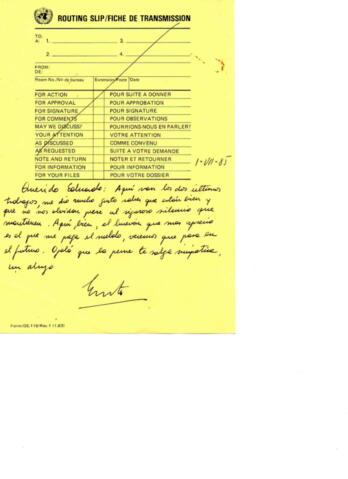 ROUTING SLIP/FICHE DE TRANSMISSION
TO:
A: 1. 3.
2. 4.
FROM:
DE:
Room No./No de bureau Extension/Poste Date
FOR ACTION POUR SUITE A DONNER
FOR APPROVAL POUR APPROBATION
FOR SIGNATURE POUR SIGNATURE
FOR COMMENTS POUR OBSERVATIONS
MAY WE DISCUSS? POURRIONS-NOUS EN PARLER?
YOUR ATTENTION VOTRE ATTENTION
AS DISCUSSED COMME CONVENU
AS REQUESTED SUITE A VOTRE DEMANDE
NOTE AND RETURN NOTER ET RETOURNER
FOR INFORMATION POUR INFORMATION
FOR YOUR FILES POUR VOTRE DOSSIER
1-VII-85
Querido Eduardo: Aquí van los dos últimos
trabajos, me dio mucho gusto saber que están bien y
que no nos olvidan pese al riguroso silencio que
mantienen. Aquí bien, el que mas aprecio
es el que me paga el sueldo, veremos que pasa en
el futuro. Ojalá que la te salga simpática,
un abrazo